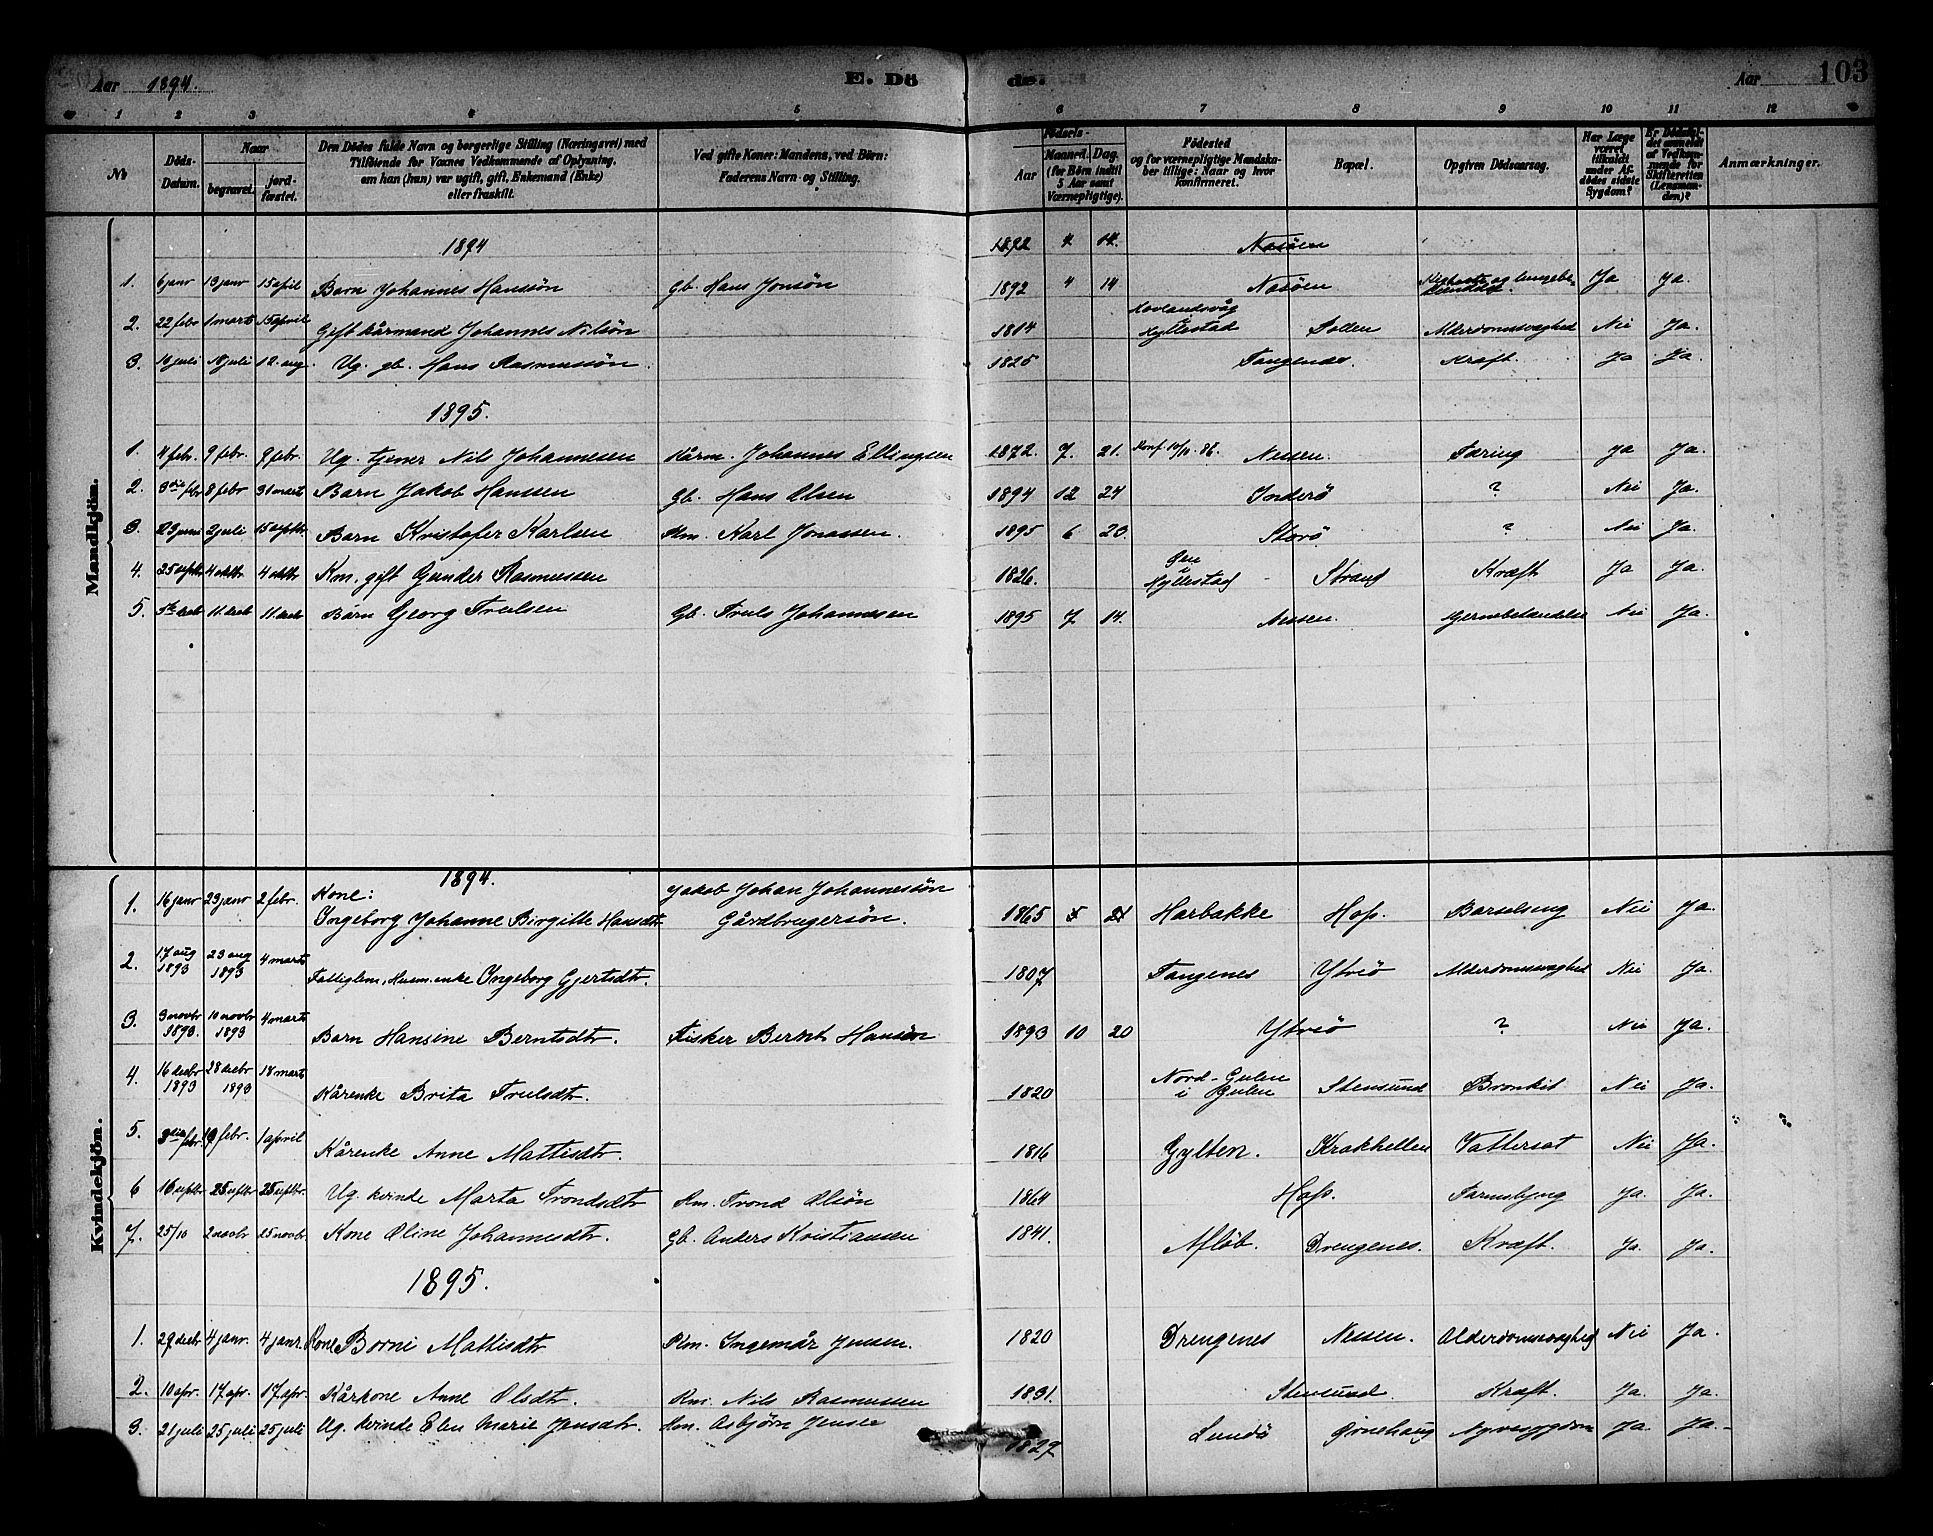 Aar 1894. E. Döde. Aar 103
1 2 3 4 5 6 7 8 9 10 11 12
No
Döds-Datum.
Naar
begravet.
jordfæstet.
Den Dödes fulde Navn og borgerlige Stilling (Næringsvei) med
Tilföiende for Voxnes Vedkommende af Oplysning,
om han (hun) var ugift, gift, Enkemand (Enke)
eller fraskilt.
Ved gifte Koner: Mandens, ved Börn:
Faderens Navn og Stilling.
Födsels-
Aar
Maaned. Dag.
(for Börn indtil
5 Aar samt
Værnepligtige).
Födested
og for værnepligtige Mandskaber tillige: Naar og hvor
konfirmeret.
Bopæl.
Opgiven Dödsaarsag.
Har Læge
været
tilkaldt
under Afdödes sidste
Sygdom?
Er Dödsfaldet anmeldt
af Vedkommende for
Skifteretten
(Lensmanden)?
Anmærkninger.
Mandkjön.
1894 1892 4 14 Nasöen
1. 6 janr 13 janr 15 april Barn Johannes Hanssön Gb. Hans Jonsön 1892 4 14 Nasöen Ja Ja.
2. 22 febr 1 marts 15 april Gift kårmand Johannes Nilsön 1814 Hyllestad Sollen Alderdomssvaghed Nei Ja.
3. 16 juli 18 juli 12. aug. Ug. gb. Hans Rasmussön. 1825 Tangenes. Kræft. Ja Ja.
1895.
1. 4 febr. 9 febr. 9 febr. Ug. tjener Nils Johannesen Kårm. Johannes Ellingsen 1872. 7. 21. Konf. 10/10. 86. Nessen. Tæring Ja Ja.
2. 3die febr 8 febr 31 marts Barn Jakob Hanssen Gb. Hans Olsen 1894 12 24 Inderö ? Nei Ja.
3. 23 juni 2 juli 15 septbr. Barn Kristofer Karlsen Km. Karl Jonassen. 1895 6 20. Storö ? Nei Ja.
4. 25 septbr 4 oktbr 4 oktbr Km. gift Gunder Rasmussen 1826. Hyllestad - Strand Kræft Ja Ja.
5. 5te decb 11. decb 11. decb Barn Georg Trulsen Gb. Truls Johannessen 1895 7 14. Nessen. Nei Ja.
Kvindekjön.
1894.
1. 16 janr 23 janr 2 febr. Kone: Jakob Johan Johannessön
Ingeborg Johanne Birgitte Hansdtr Gårdbrugersön. 1865 5 21 Harbakke Hop. Barselseng Nei Ja.
2. 17 aug 1893 23 aug 1893 4 marts Fattiglem, Husm. enke Ingeborg Gjertsdtr. 1807 Tangenes Ytrö Alderdomssvaghed Nei Ja.
3. 3 novbr 1893. 10 novbr 1893 4 marts Barn Hansine Berntsdtr. Fisker Bernt Hansen 1893 10 20 Ytrö ? Nei Ja.
4. 16 decbr 1893 28 decbr 1893 18 marts Kårenke Brita Trulsdtr. 1820 Nord-Gulen i Gulen Stensund Bronkit Nei Ja.
5. 3die febr. 19 febr. 1 april Kårenke Anne Mattisdtr. 1816 Gylten. Krakhellen Vattersot Nei Ja.
6 16 septbr 25 septbr 25 septbr Ug. kvinde Marta Trondsdtr Km. Trond Olsön 1864 Hop. Ja. Ja.
7. 25/10 2 novbr 25 novbr Kone Oline Johannesdtr. Gb. Anders Kristiansen 1841. Aflöb. Drengenes. Kræft. Ja. Ja.
1895.
1. 29 decbr 4 janr. 4 janr. Kone Borni Mattisdtr Km. Ingemår Jensen. 1820 Drengenes Nessen. Alderdomssvaghed Nei Ja.
2. 10 apr. 17 apr. 17 apr. Kårkone Anne Olsdtr. Km. Nils Rasmussen 1831. Stensund. Kræft. Ja. Ja.
3. 21 juli 25 juli 25 juli Ug. kvinde Elen Marie Jensdtr Km. Asbjörn Jensen 1827 Lundö Grönehaug Nyresygdom Ja. Ja.